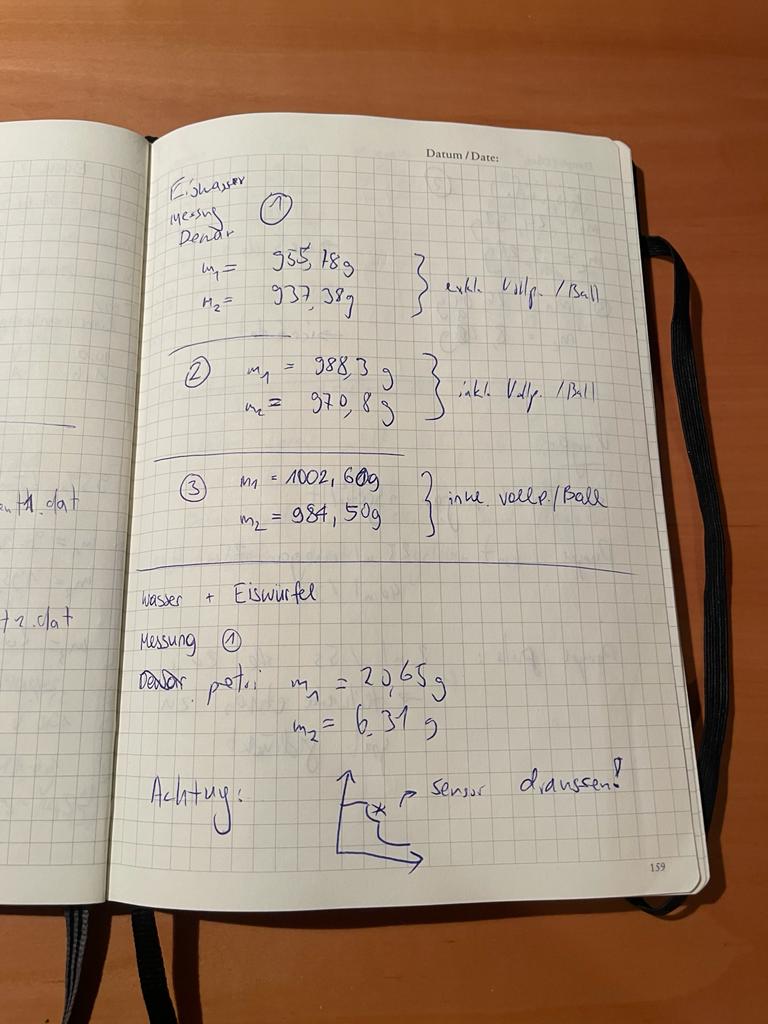 Datum / Date:
Eiswasser
Messung ①
Dewar
m₁ = 955,18g
m₂ = 937,38g } exkl. Vollp. / Ball
② m₁ = 988,3 g
m₂ = 970,8 g } inkl. Vollp. / Ball
③ m₁ = 1002,60g
m₂ = 984,50g } inkl. Vollp. / Ball
Wasser + Eiswürfel
Messung ①
petri m₁ = 20,65 g
m₂ = 6,31 g
Achtung: sensor draussen!
1.dat
2.dat
159